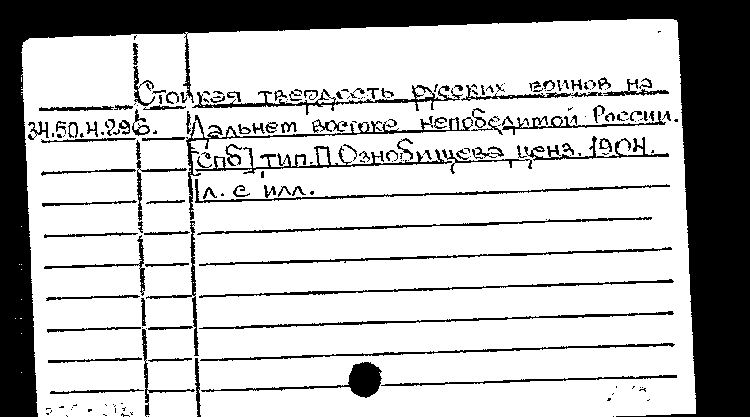 Стойкая твердость русских воинов на
34.50.4.296. Дальнем востоке непобедимой России.
[Спб] тип. П. Ознобищева, ценз. 1904.
1 л. с илл.